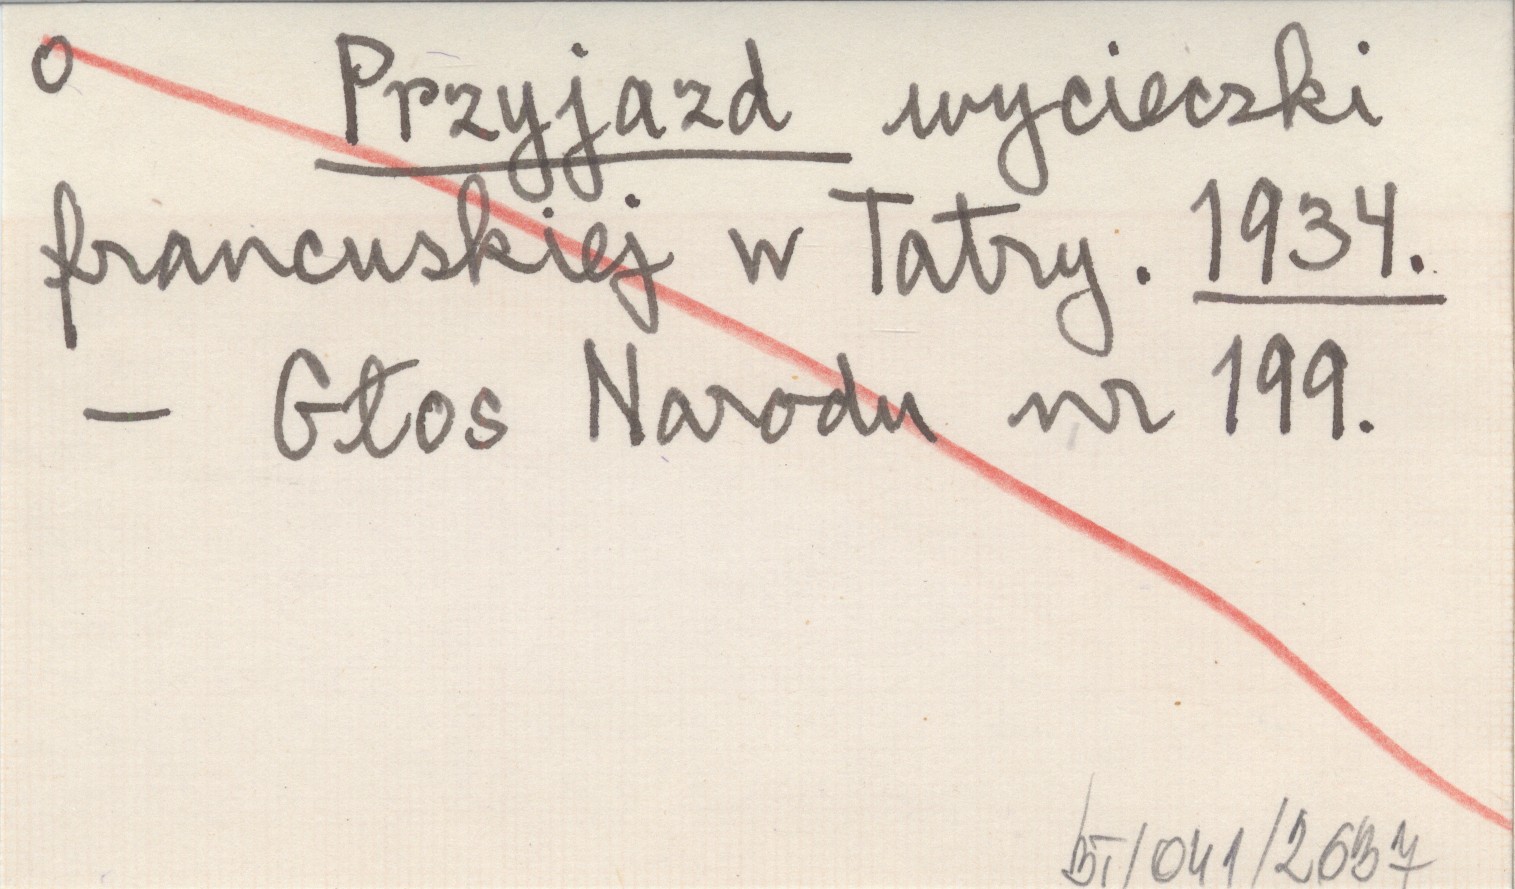 o Przyjazd wycieczki
francuskiej w Tatry. 1934.
— Głos Narodu nr 199.
BI/041/2637